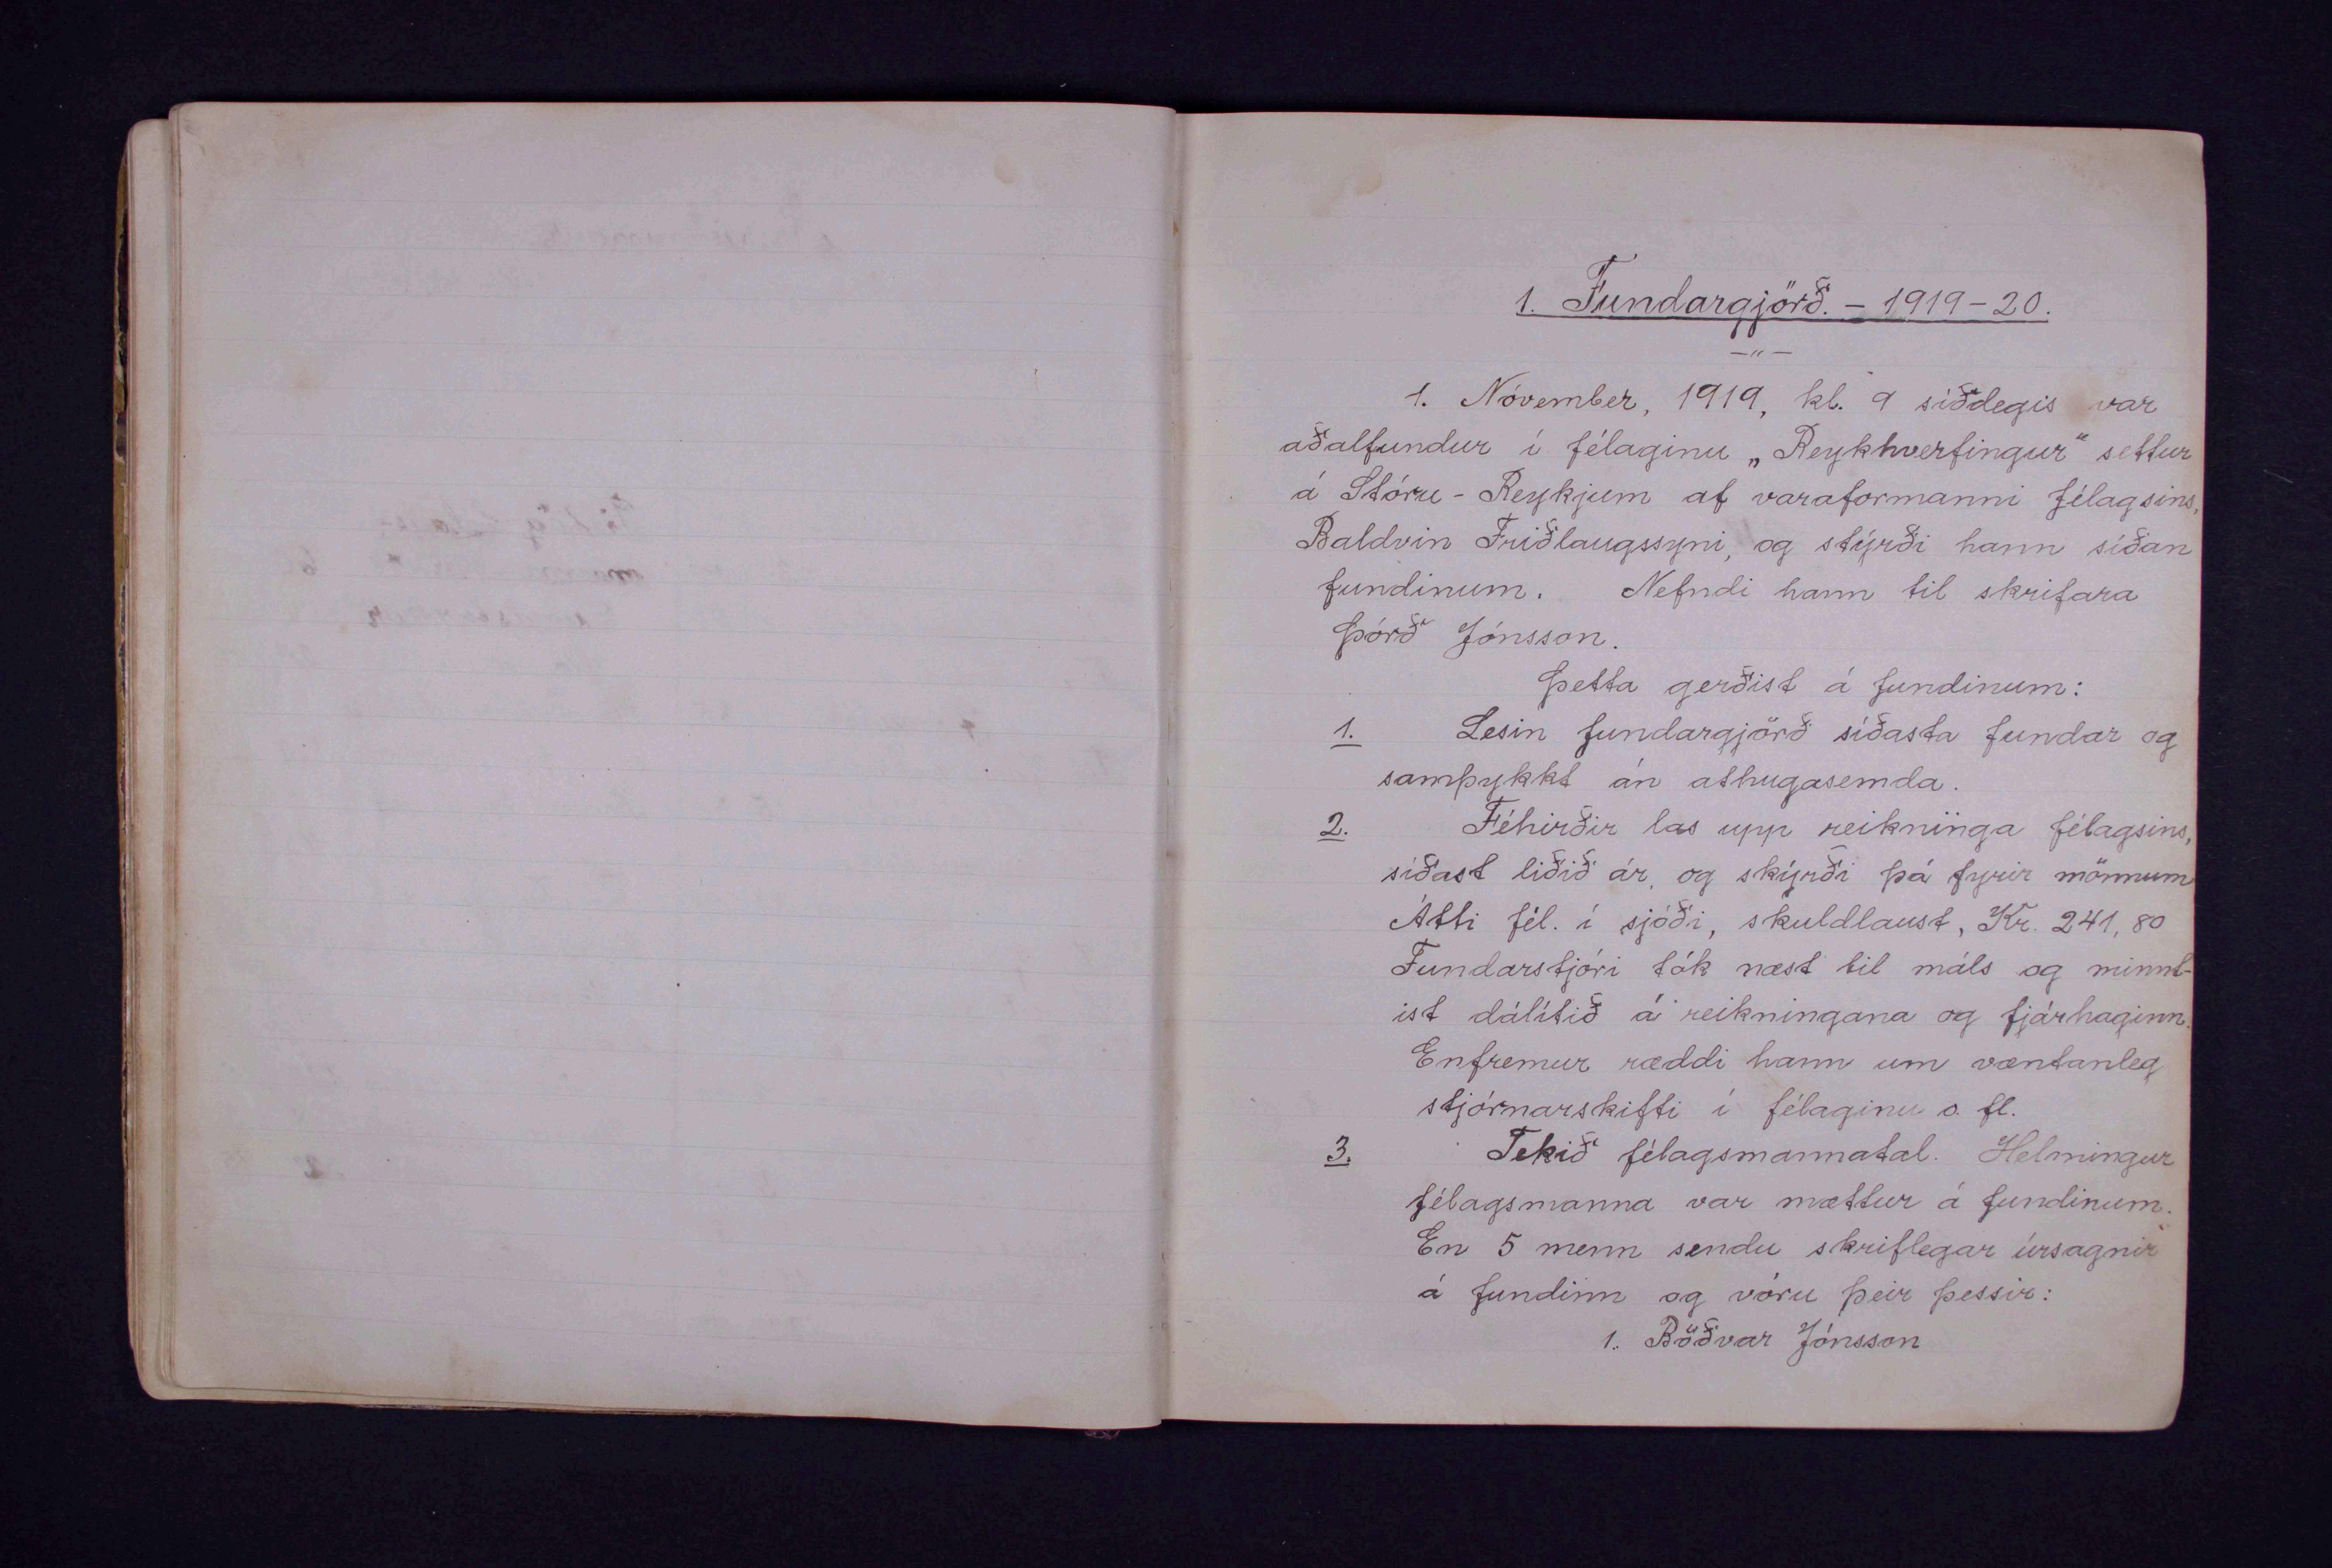 1. Fundargjörð. - 1919-20.
—〃—
1. Nóvember, 1919, kl. 9 síðdegis var
aðalfundur í félaginu „Reykhverfingur“ settur
á Stóru-Reykjum af varaformanni félagsins,
Baldvin Friðlaugssyni, og stýrði hann síðan
fundinum. Nefndi hann til skrifara
Þórð Jónsson.
Þetta gerðist á fundinum:
1. Lesin fundargjörð síðasta fundar og
samþykkt án athugasemda.
2. Féhirðir las upp reikninga félagsins,
síðast liðið ár, og skýrði þá fyrir mönnum
Átti fél. í sjóði, skuldlaust, Kr. 241,80
Fundarstjóri tók næst til máls og minnt-
ist dálítið á reikningana og fjárhaginn.
Enfremur ræddi hann um væntanleg
stjórnarskifti í félaginu o. fl.
3. Tekið félagsmannatal. Helmingur
félagsmanna var mættur á fundinum.
En 5 menn sendu skriflegar úrsagnir
á fundinn og vóru þeir þessir:
1. Böðvar Jónsson